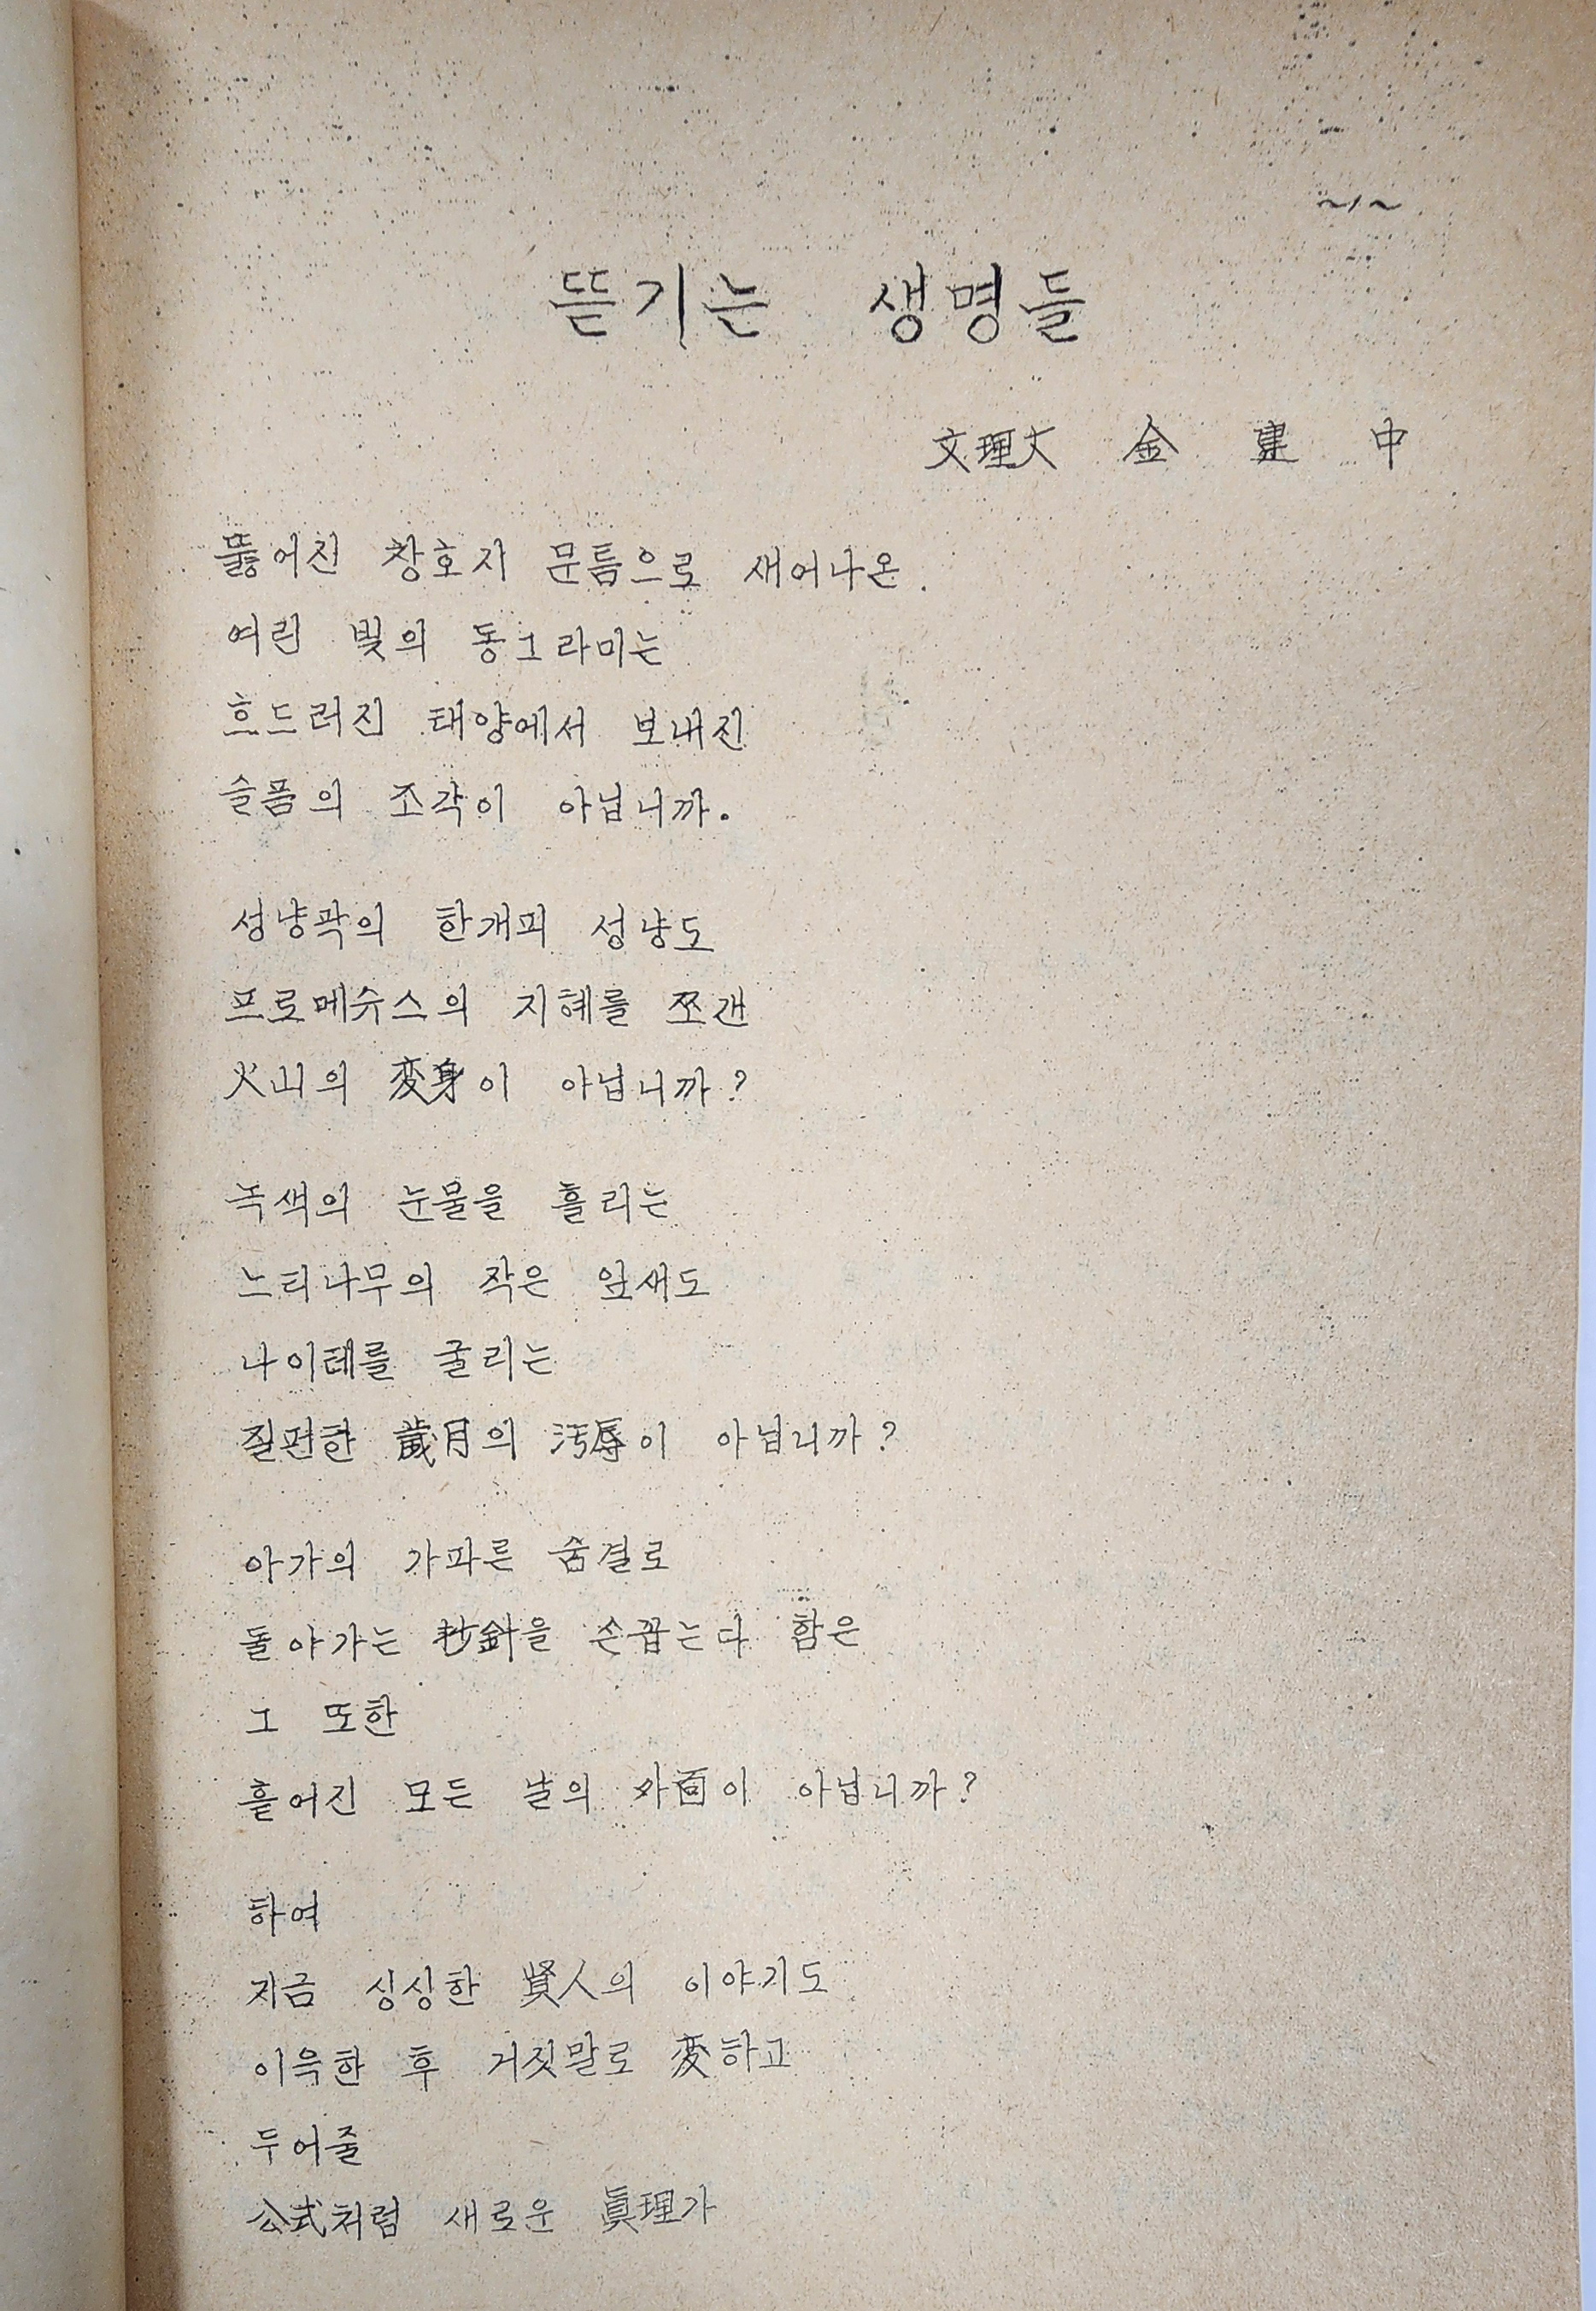 ~1~
뜯기는 생명들
文理大 金建中
뚫어진 창호지 문틈으로 새어나온
여린 빛의 동그라미는
흐드러진 태양에서 보내진
슬픔의 조각이 아닙니까.
성냥곽의 한개피 성냥도
프로메슈스의 지혜를 쪼갠
火山의 変身이 아닙니까?
녹색의 눈물을 흘리는
느티나무의 작은 잎새도
나이테를 굴리는
질펀한 歲月의 汚辱이 아닙니까?
아가의 가파른 숨결로
돌아가는 秒針을 손꼽는다 함은
그 또한
흩어진 모든 날의 外面이 아닙니까?
하여
지금 싱싱한 賢人의 이야기도
이윽한 후 거짓말로 変하고
두어줄
公式처럼 새로운 眞理가